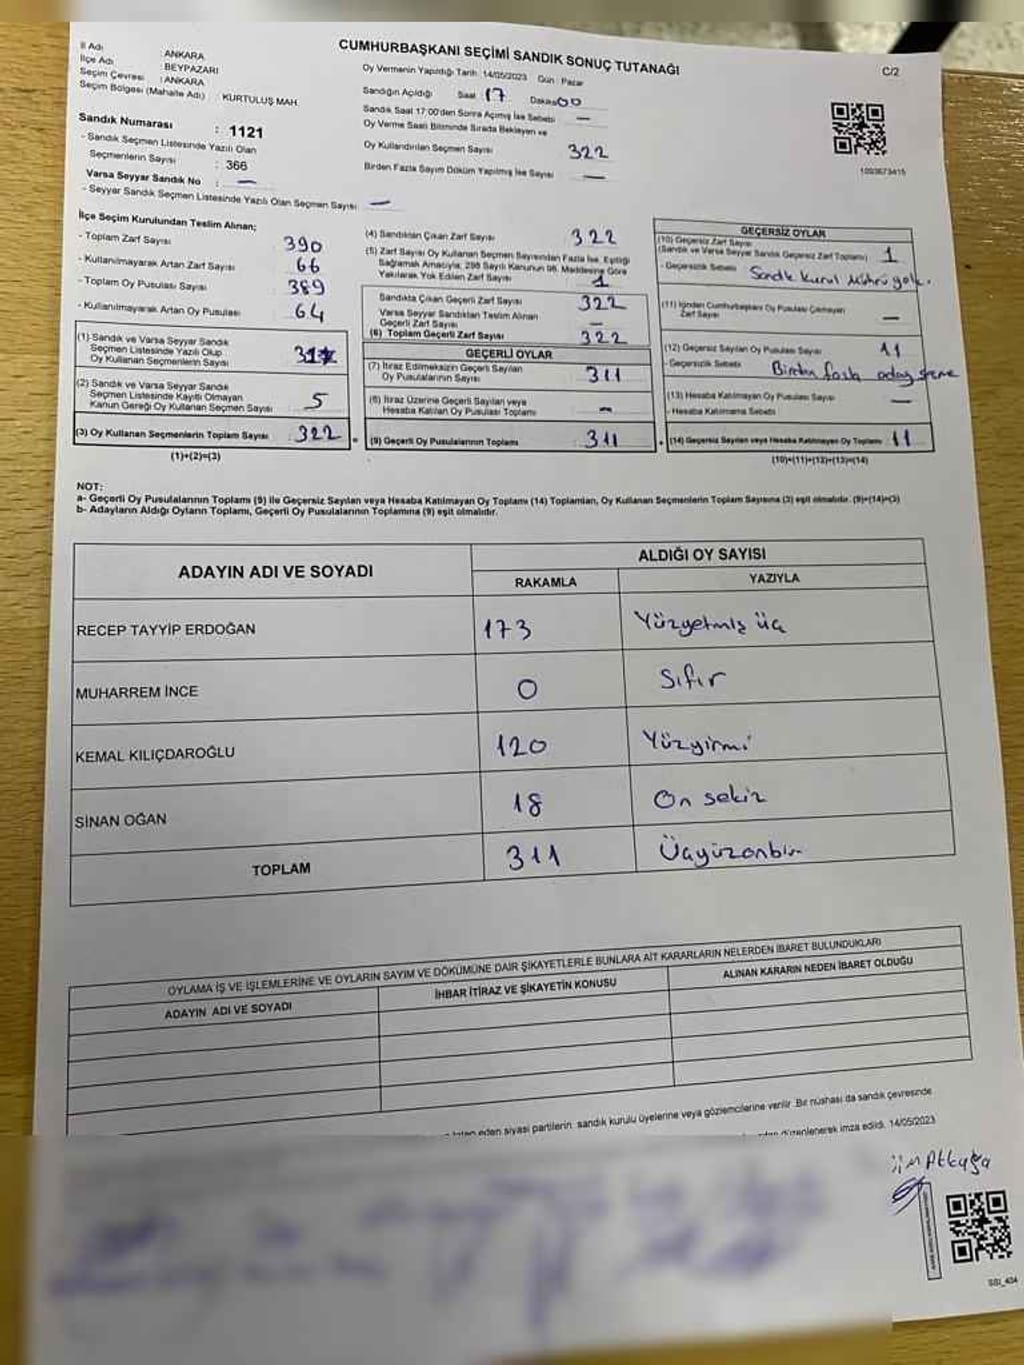 CUMHURBAŞKANI SEÇİMİ SANDIK SONUÇ TUTANAĞI
C/2
İl Adı : ANKARA
İlçe Adı : BEYPAZARI
Seçim Çevresi : ANKARA
Seçim Bölgesi (Mahalle Adı) : KURTULUŞ MAH.
Sandık Numarası : 1121
- Sandık Seçmen Listesinde Yazılı Olan
Seçmenlerin Sayısı : 366
Varsa Seyyar Sandık No : —
- Seyyar Sandık Seçmen Listesinde Yazılı Olan Seçmen Sayısı —
Oy Vermenin Yapıldığı Tarih: 14/05/2023 Gün : Pazar
Sandığın Açıldığı Saat 17 Dakika 00
Sandık Saat 17:00'den Sonra Açılmış İse Sebebi —
Oy Verme Saati Bitiminde Sırada Bekleyen ve
Oy Kullandırılan Seçmen Sayısı 322
Birden Fazla Sayım Döküm Yapılmış İse Sayısı —
1093673415
İlçe Seçim Kurulundan Teslim Alınan;
- Toplam Zarf Sayısı 390
- Kullanılmayarak Artan Zarf Sayısı 66
- Toplam Oy Pusulası Sayısı 389
- Kullanılmayarak Artan Oy Pusulası 64
(1) Sandık ve Varsa Seyyar Sandık
Seçmen Listesinde Yazılı Olup
Oy Kullanan Seçmenlerin Sayısı
(2) Sandık ve Varsa Seyyar Sandık
Seçmen Listesinde Kayıtlı Olmayan
Kanun Gereği Oy Kullanan Seçmen Sayısı 5
(3) Oy Kullanan Seçmenlerin Toplam Sayısı 322
(1)+(2)=(3)
(4) Sandıktan Çıkan Zarf Sayısı 322
(5) Zarf Sayısı Oy Kullanan Seçmen Sayısından Fazla İse, Eşitliği
Sağlamak Amacıyla; 298 Sayılı Kanunun 98. Maddesine Göre
Yakılarak Yok Edilen Zarf Sayısı 1
Sandıkta Çıkan Geçerli Zarf Sayısı 322
Varsa Seyyar Sandıktan Teslim Alınan
Geçerli Zarf Sayısı —
(6) Toplam Geçerli Zarf Sayısı 322
GEÇERLİ OYLAR
(7) İtiraz Edilmeksizin Geçerli Sayılan
Oy Pusulalarının Sayısı 311
(8) İtiraz Üzerine Geçerli Sayılan veya
Hesaba Katılan Oy Pusulası Toplamı —
(9) Geçerli Oy Pusulalarının Toplamı 311
GEÇERSİZ OYLAR
(10) Geçersiz Zarf Sayısı
(Sandık ve Varsa Seyyar Sandık Geçersiz Zarf Toplamı) 1
- Geçersizlik Sebebi Sandık kurul mührü yok.
(11) İçinden Cumhurbaşkanı Oy Pusulası Çıkmayan
Zarf Sayısı —
(12) Geçersiz Sayılan Oy Pusulası Sayısı 11
- Geçersizlik Sebebi Birden fazla aday
(13) Hesaba Katılmayan Oy Pusulası Sayısı —
- Hesaba Katılmama Sebebi
(14) Geçersiz Sayılan veya Hesaba Katılmayan Oy Toplamı 11
(10)+(11)+(12)+(13)=(14)
NOT:
a- Geçerli Oy Pusulalarının Toplamı (9) ile Geçersiz Sayılan veya Hesaba Katılmayan Oy Toplamı (14) Toplamları, Oy Kullanan Seçmenlerin Toplam Sayısına (3) eşit olmalıdır. (9)+(14)=(3)
b- Adayların Aldığı Oyların Toplamı, Geçerli Oy Pusulalarının Toplamına (9) eşit olmalıdır.
ADAYIN ADI VE SOYADI
ALDIĞI OY SAYISI
RAKAMLA YAZIYLA
RECEP TAYYİP ERDOĞAN 173 Yüzyetmiş üç
MUHARREM İNCE 0 Sıfır
KEMAL KILIÇDAROĞLU 120 Yüzyirmi
SİNAN OĞAN 18 On sekiz
TOPLAM 311 Üçyüzonbir
OYLAMA İŞ VE İŞLEMLERİNE VE OYLARIN SAYIM VE DÖKÜMÜNE DAİR ŞİKAYETLERLE BUNLARA AİT KARARLARIN NELERDEN İBARET BULUNDUKLARI
ADAYIN ADI VE SOYADI İHBAR İTİRAZ VE ŞİKAYETİN KONUSU ALINAN KARARIN NEDEN İBARET OLDUĞU
eden siyasi partilerin, sandık kurulu üyelerine veya gözlemcilerine verilir. Bir nüshası da sandık çevresinde
düzenlenerek imza edildi. 14/05/2023